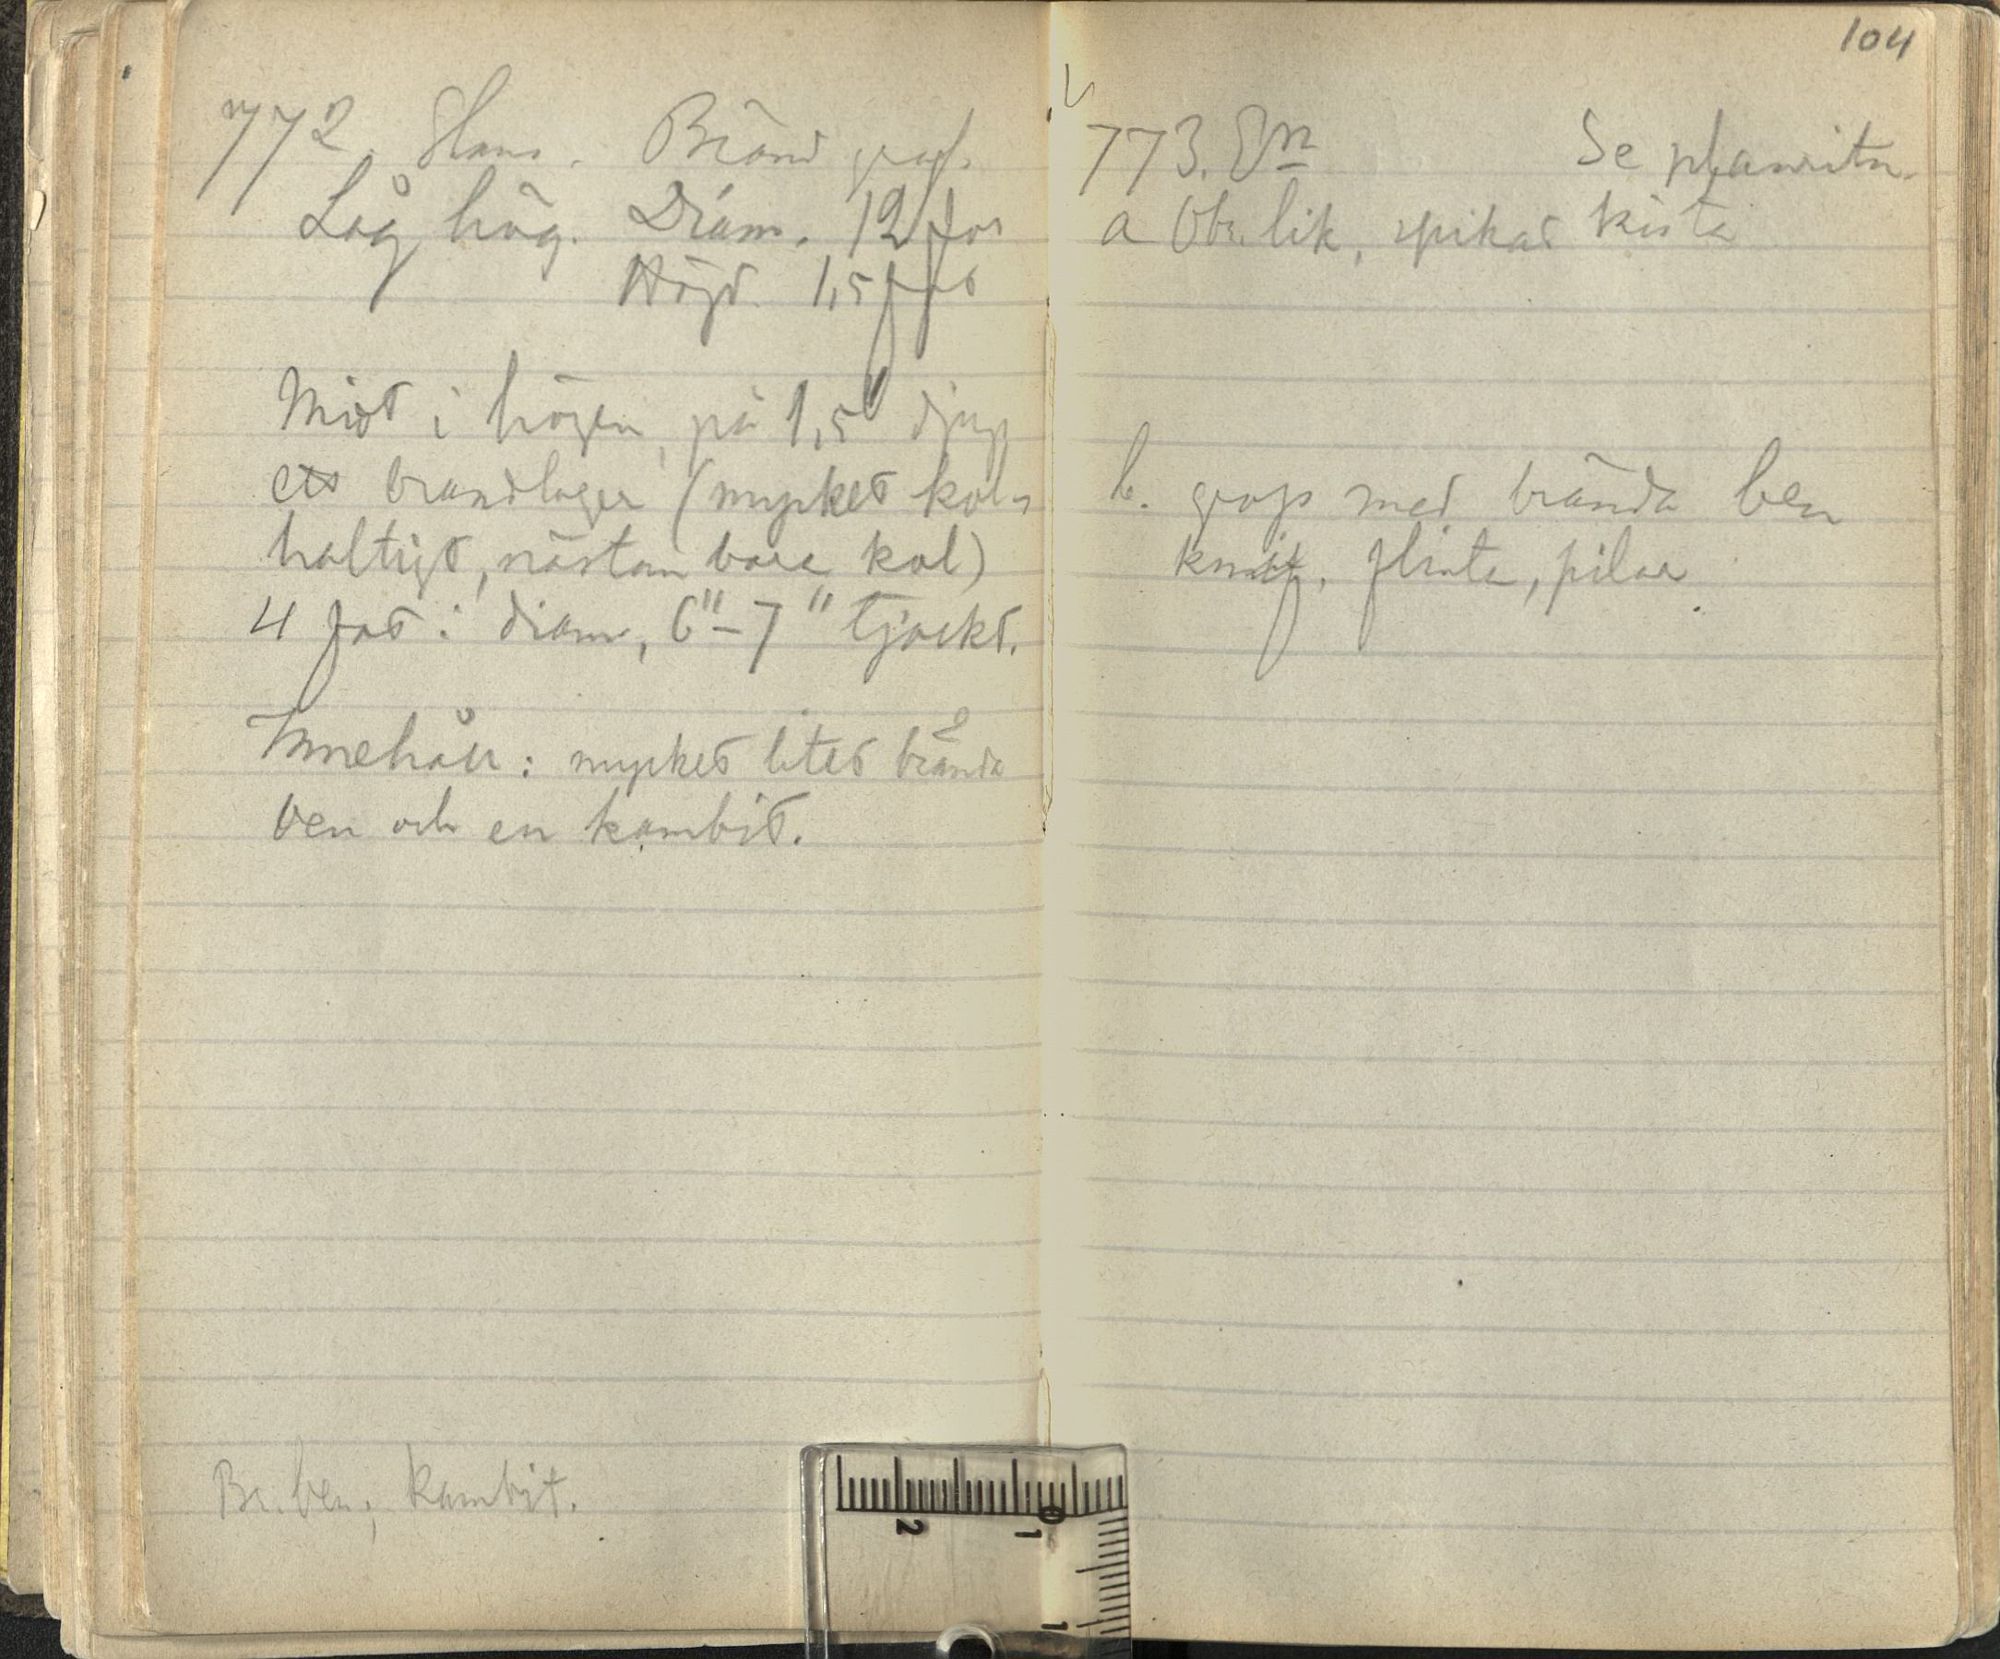 772. Hans. Bränd graf.
Låg hög. Diam. 12 fot
Höjd. 1,5 fot
Midt i högen, på 1,5' djup
ett brandlager (mycket kol-
haltigt, nästan bara kol)
4 fot i diam, 6"–7" tjockt.
Innehåll: mycket litet brända
ben och en kambit.
Br. ben; kambit.
104
773. Se planritn.
a Obr. lik, spikad kista
b. grop med brända ben
knif, flinta, pilar
2
1
0
1